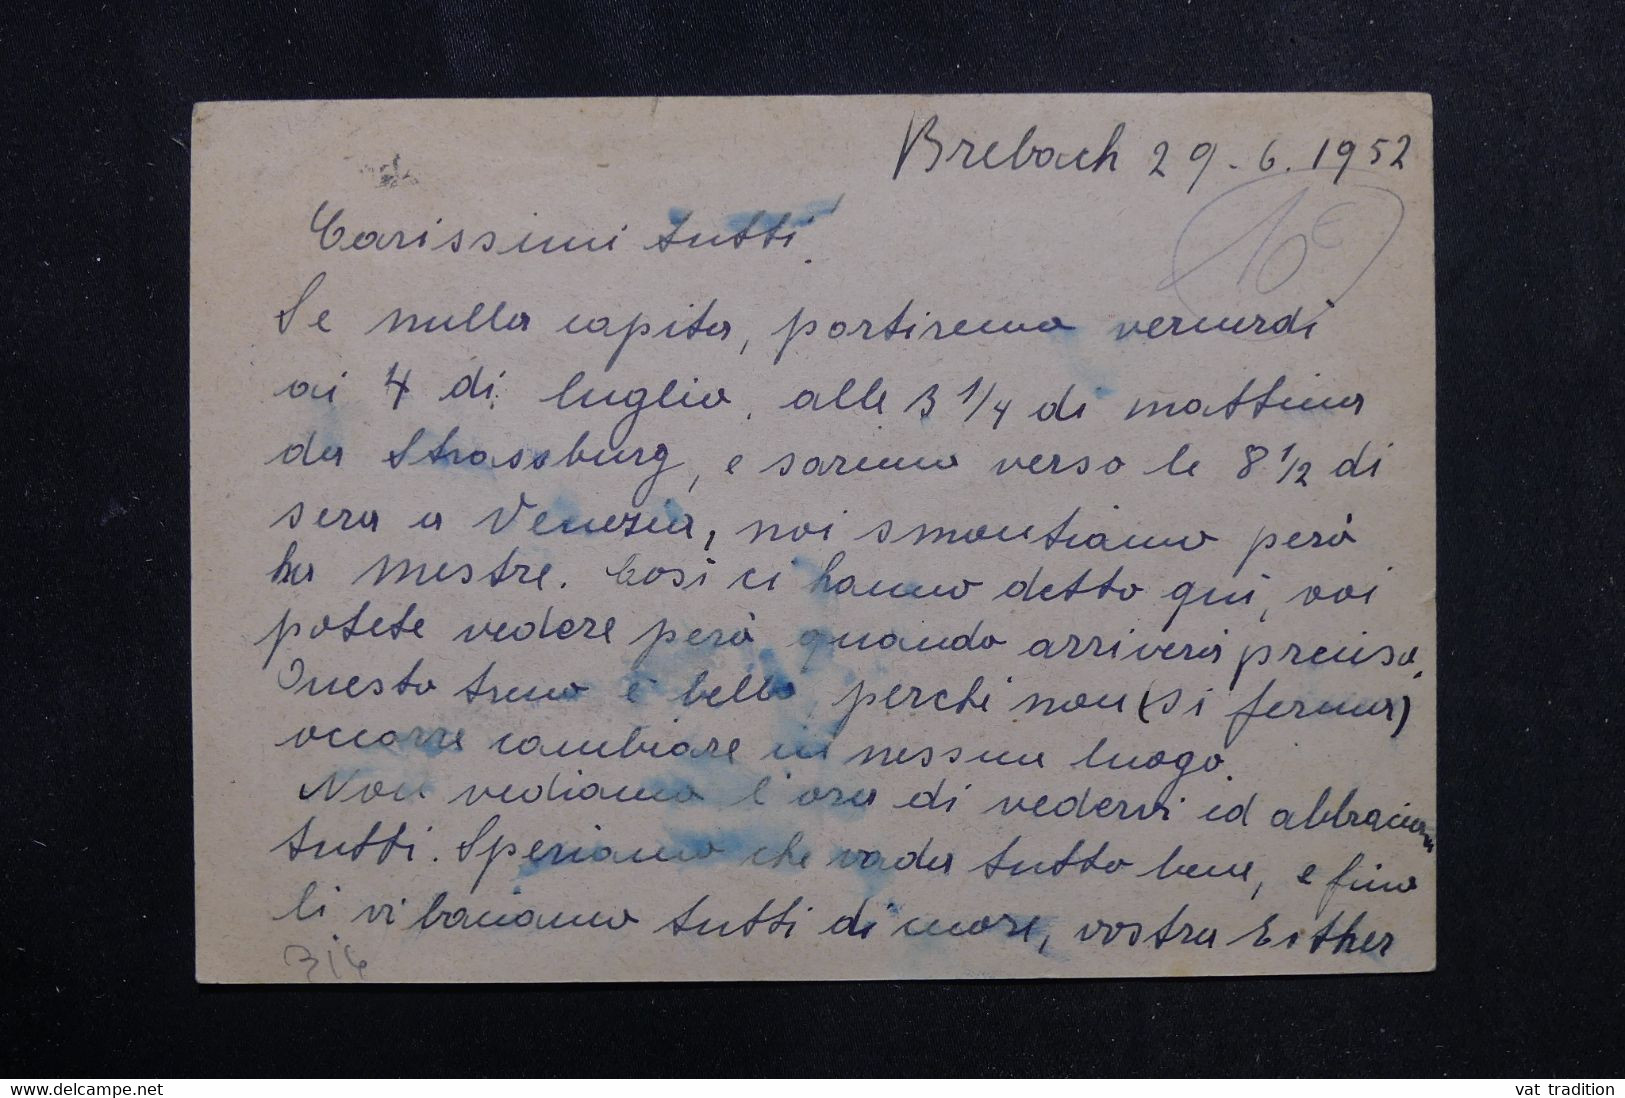 Brebach 29-6.1952
10€
Carissimi tutti
Se nulla capita, partiremo venerdi
ai 4 di luglio, alle 3 1/4 di mattina
da Strassburg, e saremo verso le 8 1/2 di
sera a Venezia, noi smontiamo però
ha mestre. Cosi ci hanno detto qui, voi
potete vedere però quando arriverà preciso.
Questo treno è bello perchi non (si ferma)
occorre cambiare in nessun luogo.
Non vediamo l'ora di vedervi ed abbracciarvi
tutti. Speriamo che vada tutto bene, e fino
li vi baciamo tutti di cuore, vostra Esther
www.delcampe.net
vat tradition